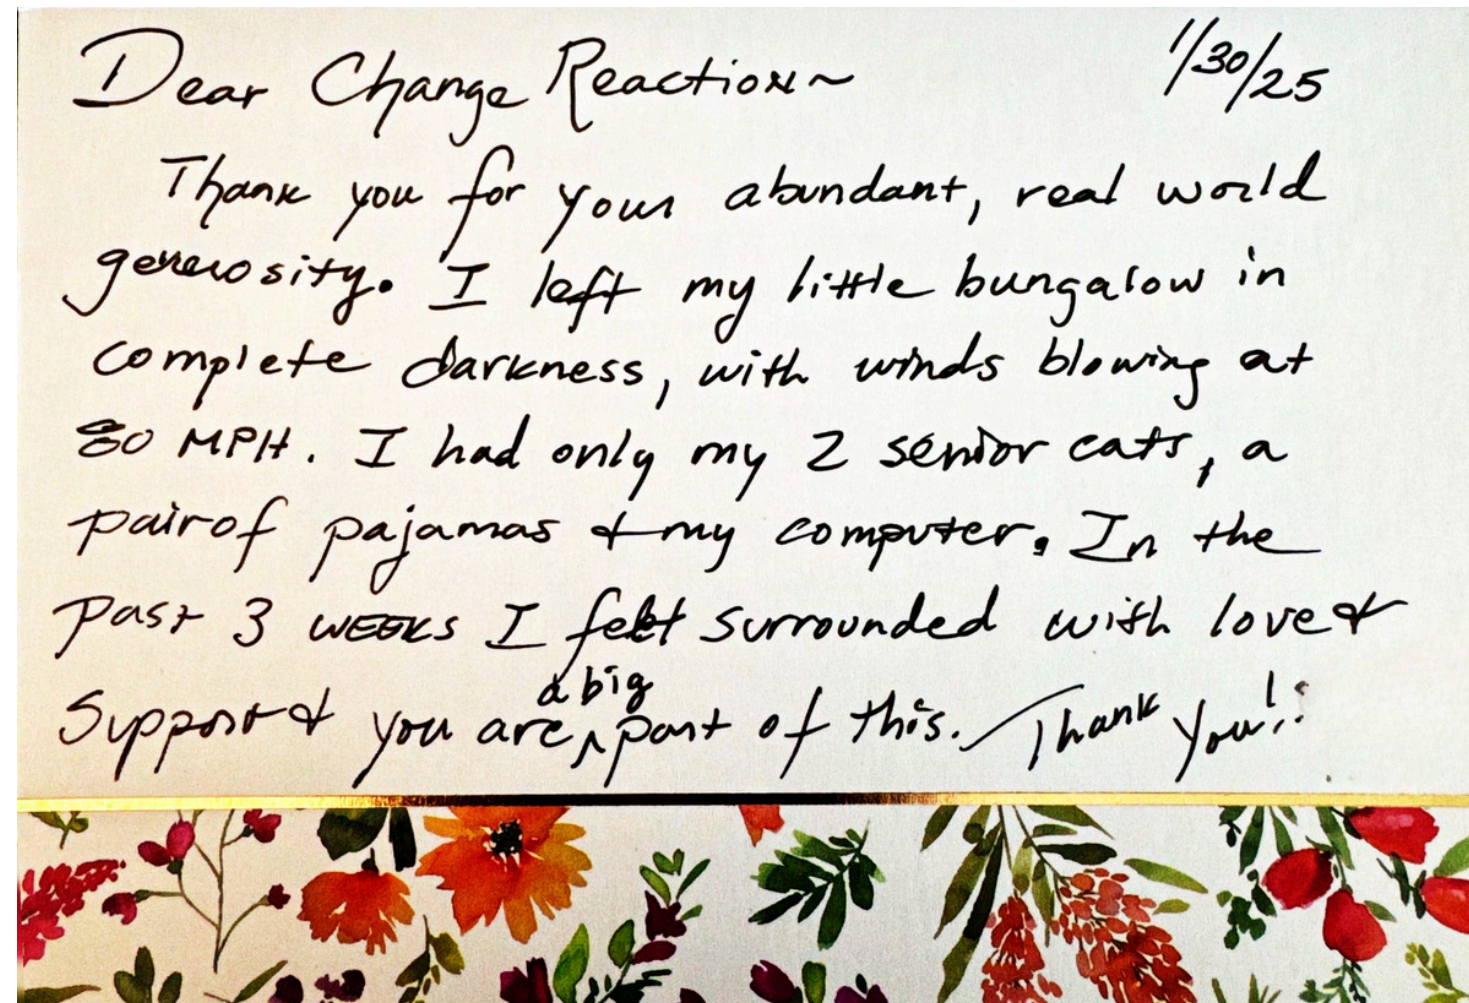 Dear Change Reaction~ 1/30/25
Thank you for your abundant, real world
generosity. I left my little bungalow in
complete darkness, with winds blowing at
80 MPH. I had only my 2 senior cats, a
pair of pajamas & my computer. In the
past 3 WEEKS I felt surrounded with love &
support & you are ^ a big part of this. Thank you!!